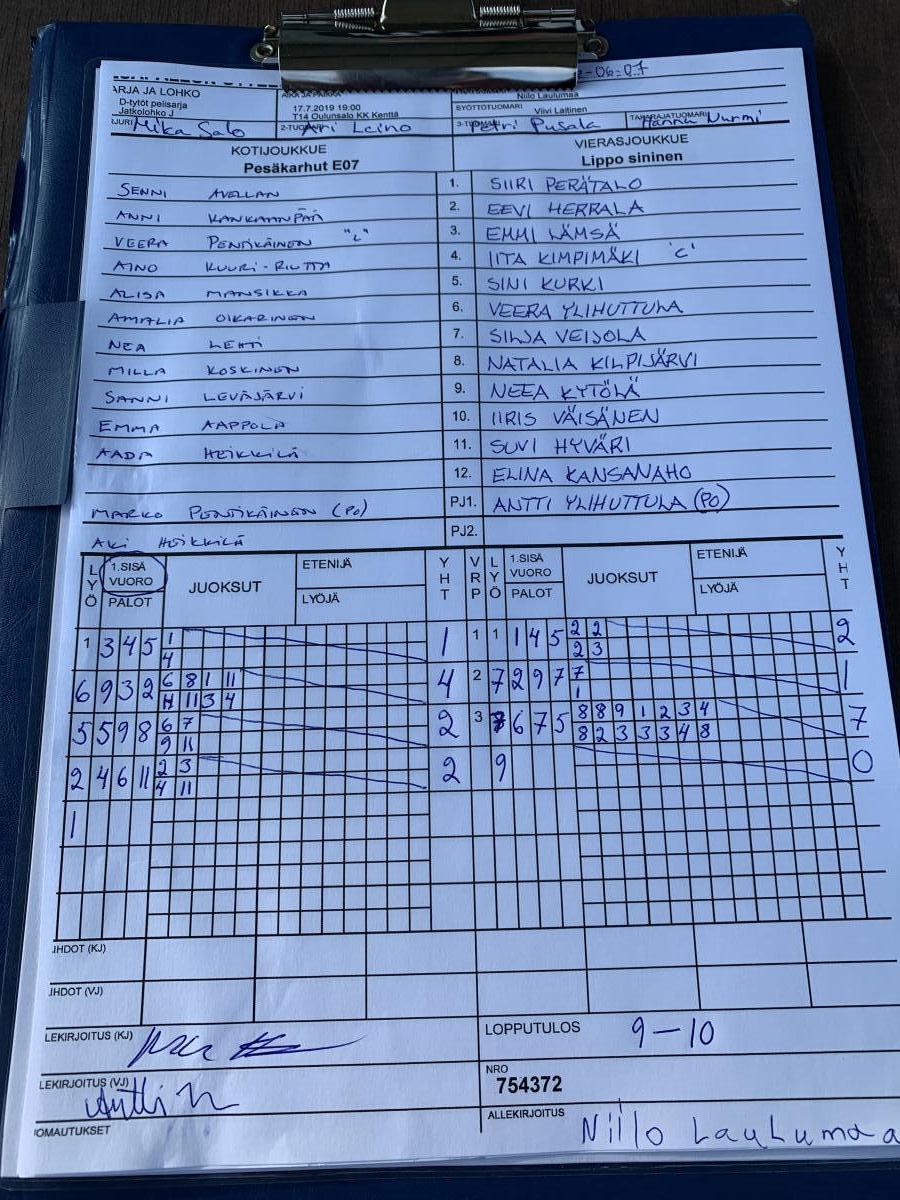 -06:07
ARJA JA LOHKO AIKA JA PAIKKA Niilo Laulumaa
D-tytöt pelisarja 17.7.2019 19:00 SYÖTTÖTUOMARI Viivi Laitinen
Jatkolohko J T14 Oulunsalo KK Kenttä
Mika Salo Ari Leino Petri Pusala TAKARAJATUOMARI Hannu Nurmi
KOTIJOUKKUE VIERASJOUKKUE
Pesäkarhut E07 Lippo sininen
SENNI AVELLAN 1. SIIRI PERÄTALO
ANNI KANKAANPÄÄ 2. EEVI HERRALA
VEERA PENTIKÄINEN "C" 3. EMMI LÄMSÄ
AINO KUURI-RIUTTA 4. IITA KIMPIMÄKI 'C'
ALISA MANSIKKA 5. SINI KURKI
AMALIA OIKARINEN 6. VEERA YLIHUTTULA
NEA LEHTI 7. SILJA VEIJOLA
MILLA KOSKINEN 8. NATALIA KILPIJÄRVI
SANNI LEVÄJÄRVI 9. NEEA KYTÖLÄ
EMMA AAPPOLA 10. IIRIS VÄISÄNEN
AADA HEIKKILÄ 11. SUVI HYVÄRI
12. ELINA KANSANAHO
MARKO PENTIKÄINEN (PO) PJ1. ANTTI YLIHUTTULA (PO)
AKI HEIKKILÄ PJ2.
LYÖ 1.SISÄ VUORO PALOT JUOKSUT ETENIJÄ LYÖJÄ YHT VRP LYÖ 1.SISÄ VUORO PALOT JUOKSUT ETENIJÄ LYÖJÄ YHT
1 3 4 5 1 1 1 1 1 4 5 2 2 2
4 2 3
6 9 3 2 6 8 1 11 4 2 7 2 9 7 7 1
11 3 4 1
5 5 9 8 6 7 2 3 6 7 5 8 8 9 1 2 3 4 7
9 11 8 2 3 3 3 4 8
2 4 6 11 2 3 2 9 0
4 11
1
IHDOT (KJ)
IHDOT (VJ)
LEKIRJOITUS (KJ) LOPPUTULOS 9-10
LEKIRJOITUS (VJ) Antti NRO 754372
OMAUTUKSET ALLEKIRJOITUS Niilo Laulumaa